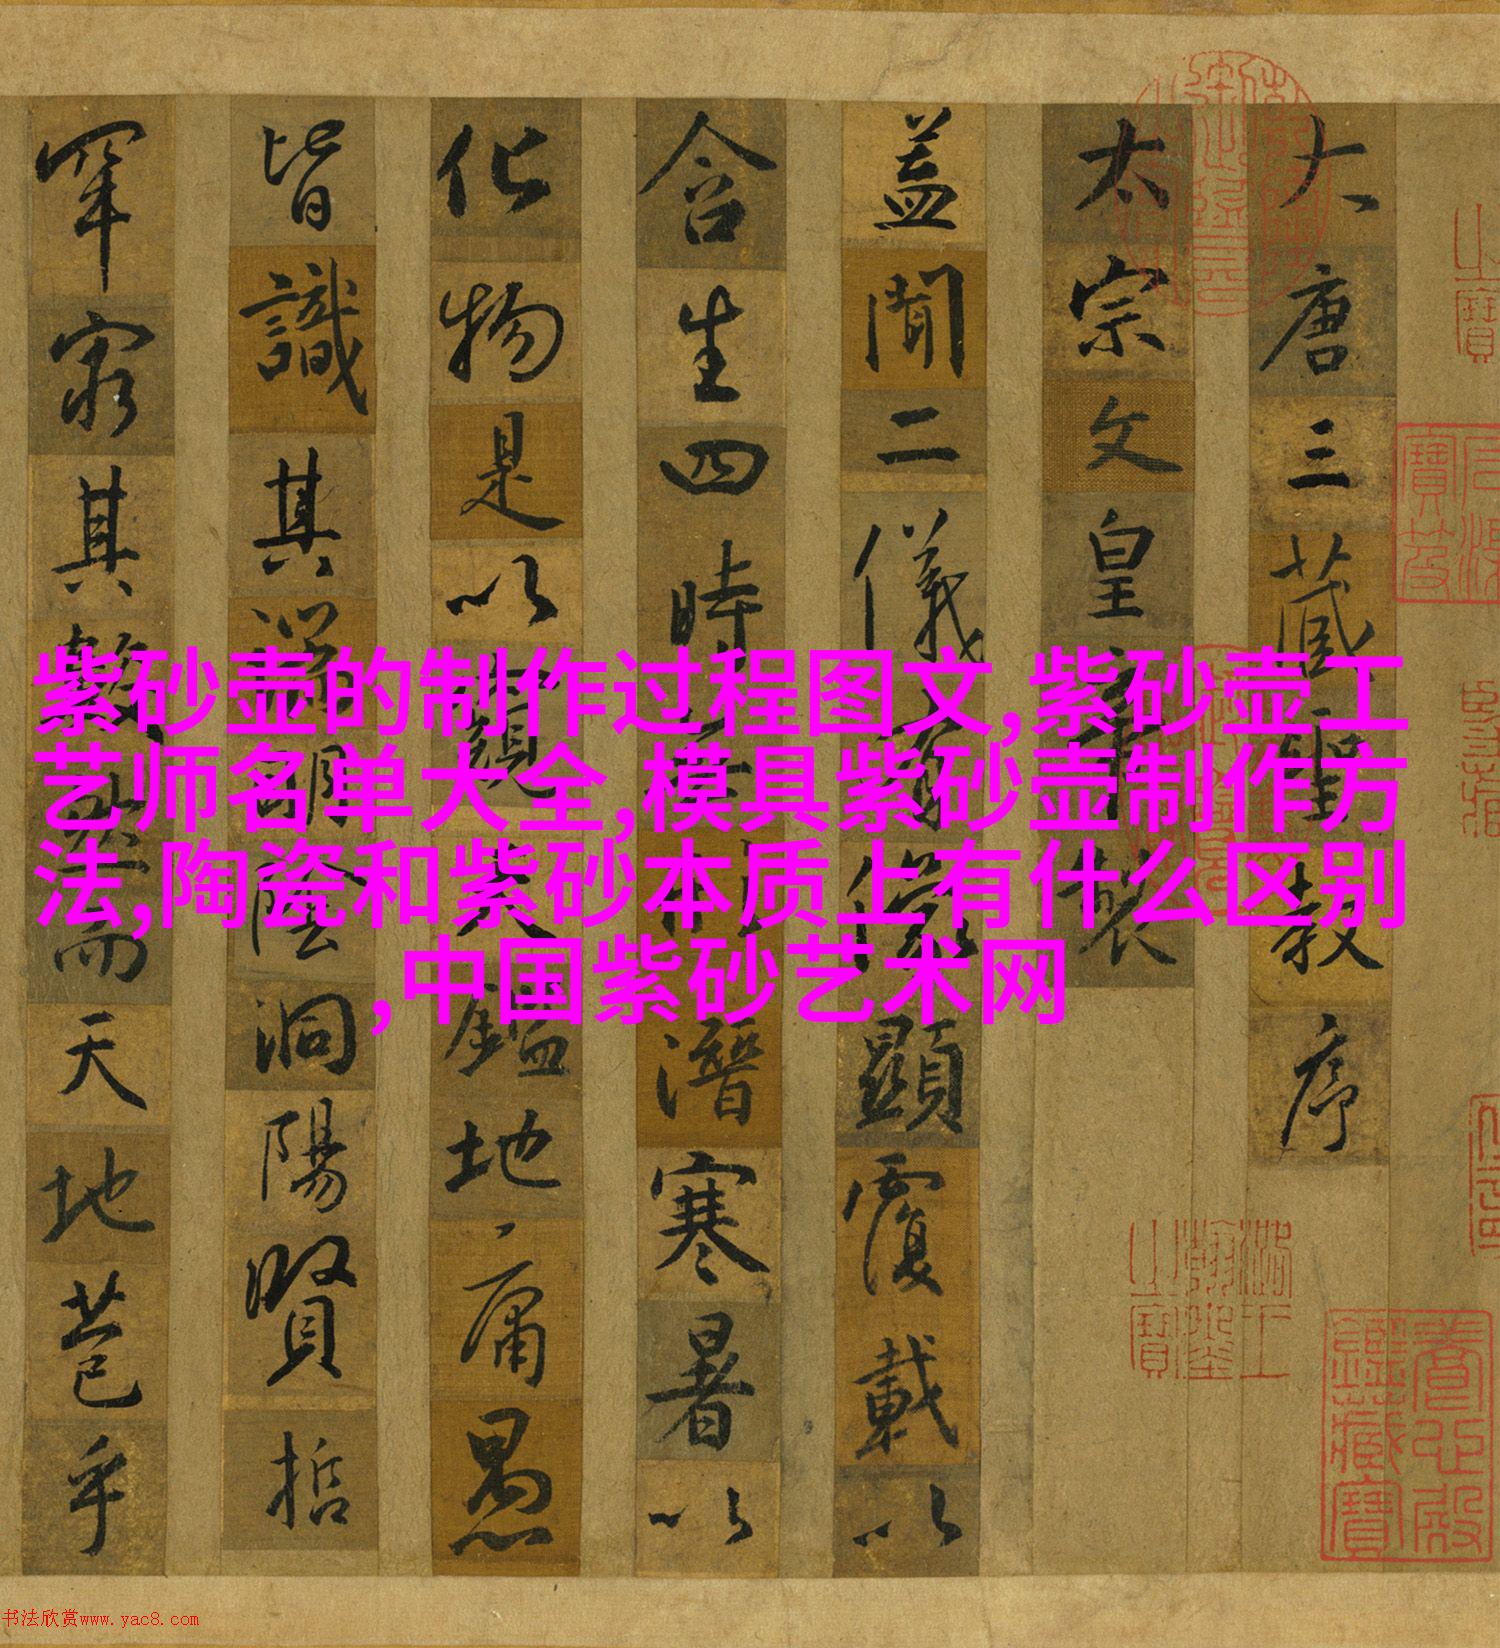 大唐三藏聖教序
太宗文皇帝製
蓋聞二儀有像顯覆載以
含生四時無形潛寒暑以
化物是以窺天鑑地庸愚
皆識其端明陰洞陽賢哲
罕窮其數然而天地苞乎
紫砂壶的制作过程图文,紫砂壶工
艺师名单大全,模具紫砂壶制作方
法,陶瓷和紫砂本质上有什么区别
,中国紫砂艺术网
養心殿
鑑藏寶
书法欣赏www.yac8.com